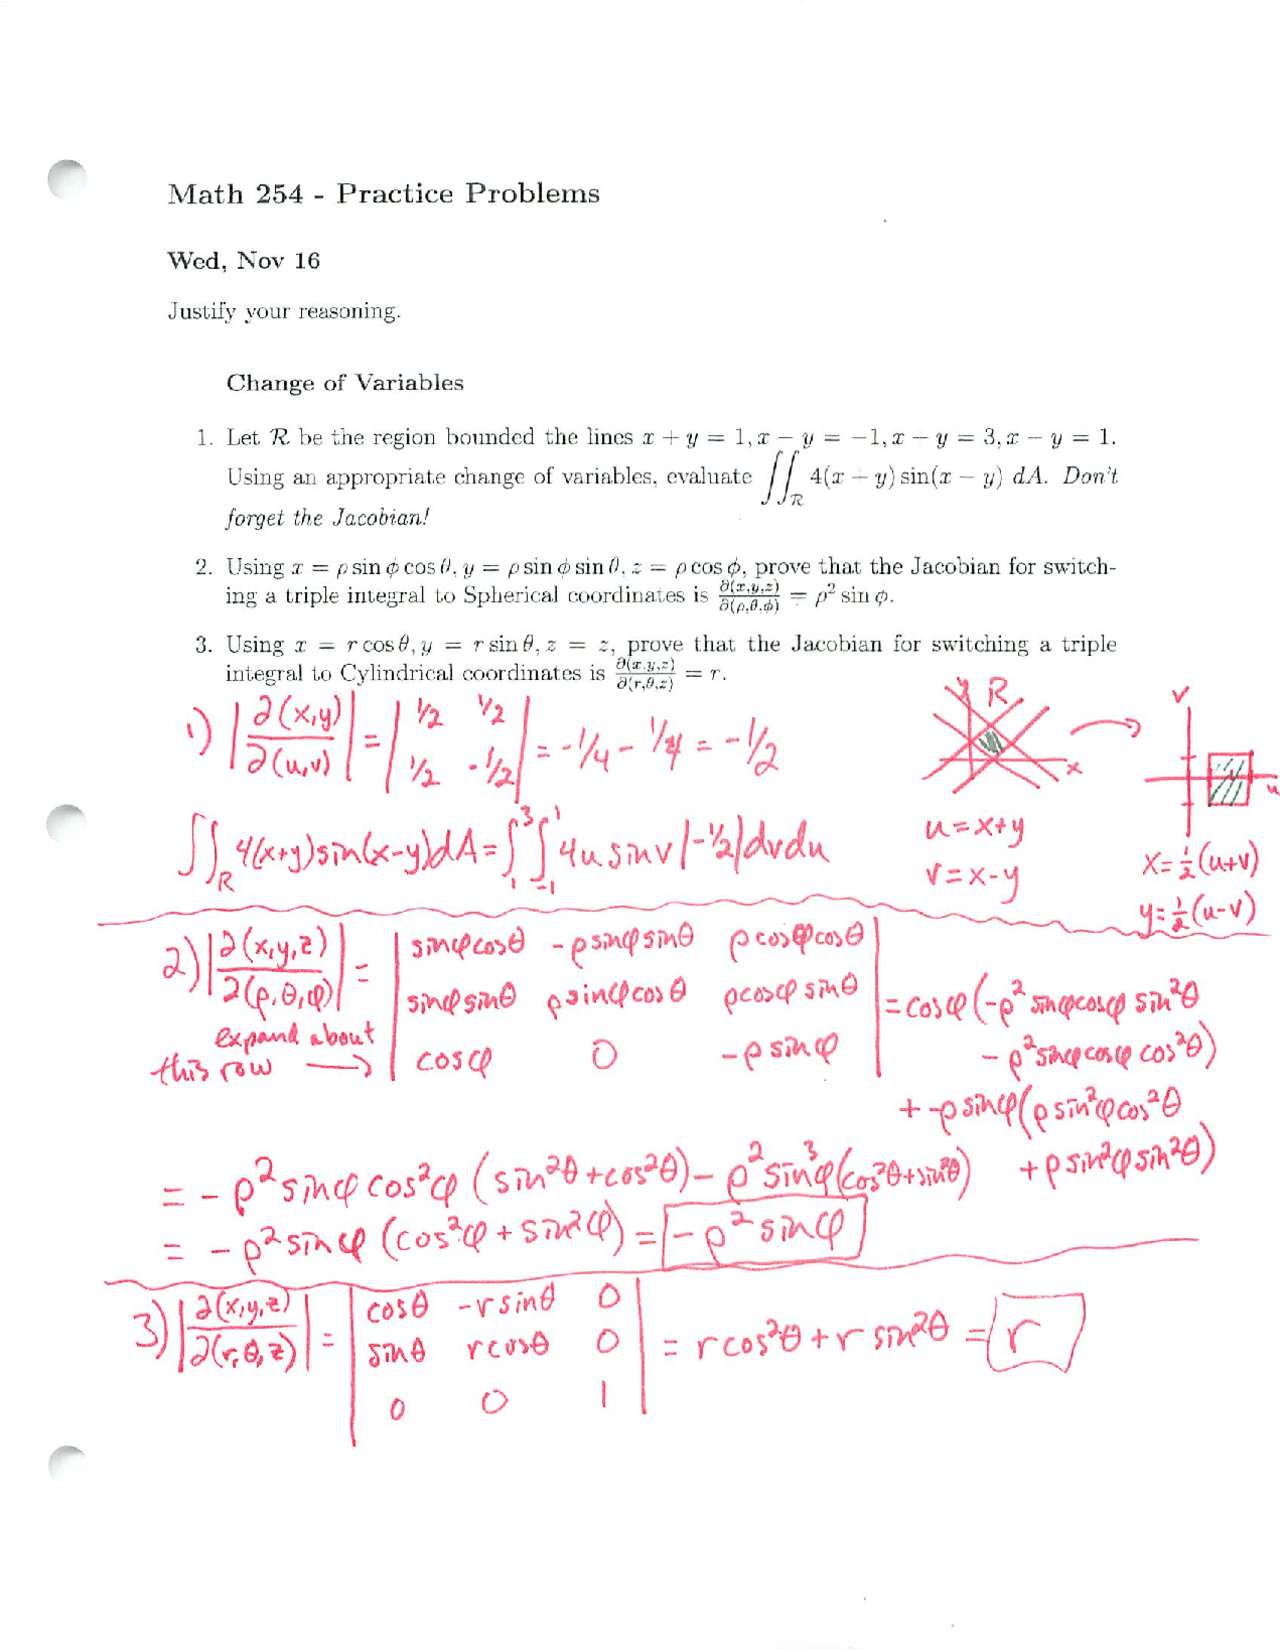 Math 254 - Practice Problems
Wed, Nov 16
Justify your reasoning.
Change of Variables
1. Let R be the region bounded the lines x + y = 1, x − y = −1, x − y = 3, x − y = 1.
Using an appropriate change of variables, evaluate ∬_R 4(x − y) sin(x − y) dA. Don't
forget the Jacobian!
2. Using x = ρ sin ϕ cos θ, y = ρ sin ϕ sin θ, z = ρ cos ϕ, prove that the Jacobian for switch-
ing a triple integral to Spherical coordinates is ∂(x,y,z)/∂(ρ,θ,ϕ) = ρ² sin ϕ.
3. Using x = r cos θ, y = r sin θ, z = z, prove that the Jacobian for switching a triple
integral to Cylindrical coordinates is ∂(x,y,z)/∂(r,θ,z) = r.
1) |∂(x,y)/∂(u,v)| = | 1/2 1/2
1/2 -1/2 | = -1/4 - 1/4 = -1/2
R
x
v
u
u=x+y
v=x-y
x=½(u+v)
y=½(u-v)
∬_R 4(x+y)sin(x-y)dA = ∫_1^3 ∫_-1^1 4u sinv |-1/2| dvdu
2) |∂(x,y,z)/∂(ρ,θ,φ)| = | sinφcosθ -ρsinφsinθ ρcosφcosθ
sinφsinθ ρsinφcosθ ρcosφsinθ
cosφ 0 -ρsinφ |
expand about
this row →
= cosφ(-ρ² sinφcosφ sin²θ
- ρ²sinφcosφ cos²θ)
+ -ρsinφ(ρsin²φcos²θ
+ρsin²φsin²θ)
= -ρ²sinφcos²φ (sin²θ+cos²θ) - ρ²sin³φ(cos²θ+sin²θ)
= -ρ²sinφ (cos²φ + sin²φ) = -ρ²sinφ
3) |∂(x,y,z)/∂(r,θ,z)| = | cosθ -rsinθ 0
sinθ rcosθ 0
0 0 1 | = rcos²θ + r sin²θ = r